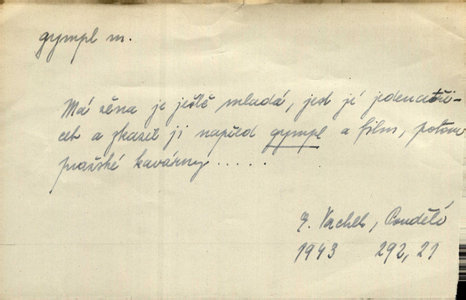 gympl m.
Má žena je ještě mladá, jest jí jedenatři-
cet a zkazil ji napřed gympl a film, potom
pražské kavárny.....
E. Vachek, Pondělí
1943 292,21